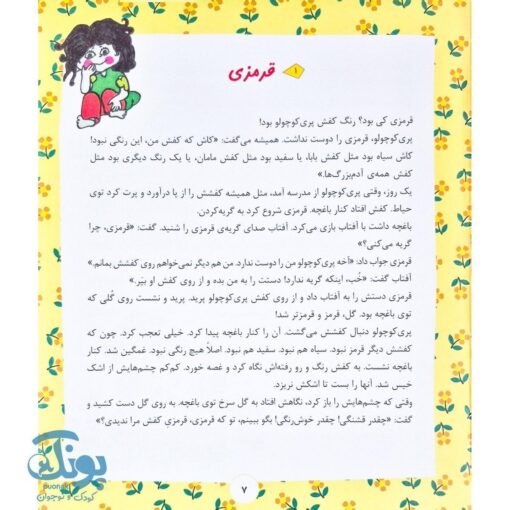 ۱ قرمزی
قرمزی کی بود؟ رنگ کفش پری‌کوچولو بود!
پری‌کوچولو، قرمزی را دوست نداشت. همیشه می‌گفت: «کاش که کفش من، این رنگی نبود!
کاش سیاه بود مثل کفش بابا، یا سفید بود مثل کفش مامان، یا یک رنگ دیگری بود مثل
کفش همه‌ی آدم‌بزرگ‌ها.»
یک روز، وقتی پری‌کوچولو از مدرسه آمد، مثل همیشه کفشش را از پا درآورد و پرت کرد توی
حیاط. کفش افتاد کنار باغچه. قرمزی شروع کرد به گریه‌کردن.
باغچه داشت با آفتاب بازی می‌کرد. آفتاب صدای گریه‌ی قرمزی را شنید. گفت: «قرمزی، چرا
گریه می‌کنی؟»
قرمزی جواب داد: «آخه پری‌کوچولو من را دوست ندارد. من هم دیگر نمی‌خواهم روی کفشش بمانم.»
آفتاب گفت: «خُب، اینکه گریه ندارد! دستت را به من بده و از روی کفش او بپر.»
قرمزی دستش را به آفتاب داد و از روی کفش پری‌کوچولو پرید. پرید و نشست روی گُلی که
توی باغچه بود. گل، قرمز و قرمزتر شد!
پری‌کوچولو دنبال کفشش می‌گشت. آن را کنار باغچه پیدا کرد. خیلی تعجب کرد. چون که
کفشش دیگر قرمز نبود. سیاه هم نبود. سفید هم نبود. اصلاً هیچ رنگی نبود. غمگین شد. کنار
باغچه نشست. به کفش رنگ و رو رفته‌اش نگاه کرد و غصه خورد. کم‌کم چشم‌هایش از اشک
خیس شد. آنها را بست تا اشکش نریزد.
وقتی که چشم‌هایش را باز کرد، نگاهش افتاد به گل سرخ توی باغچه. به روی گل دست کشید و
گفت: «چقدر قشنگی! چقدر خوش‌رنگی! بگو ببینم، تو که قرمزی، قرمزیِ کفش مرا ندیدی؟»
۷
پونک
puonak
کودک و نوجوان